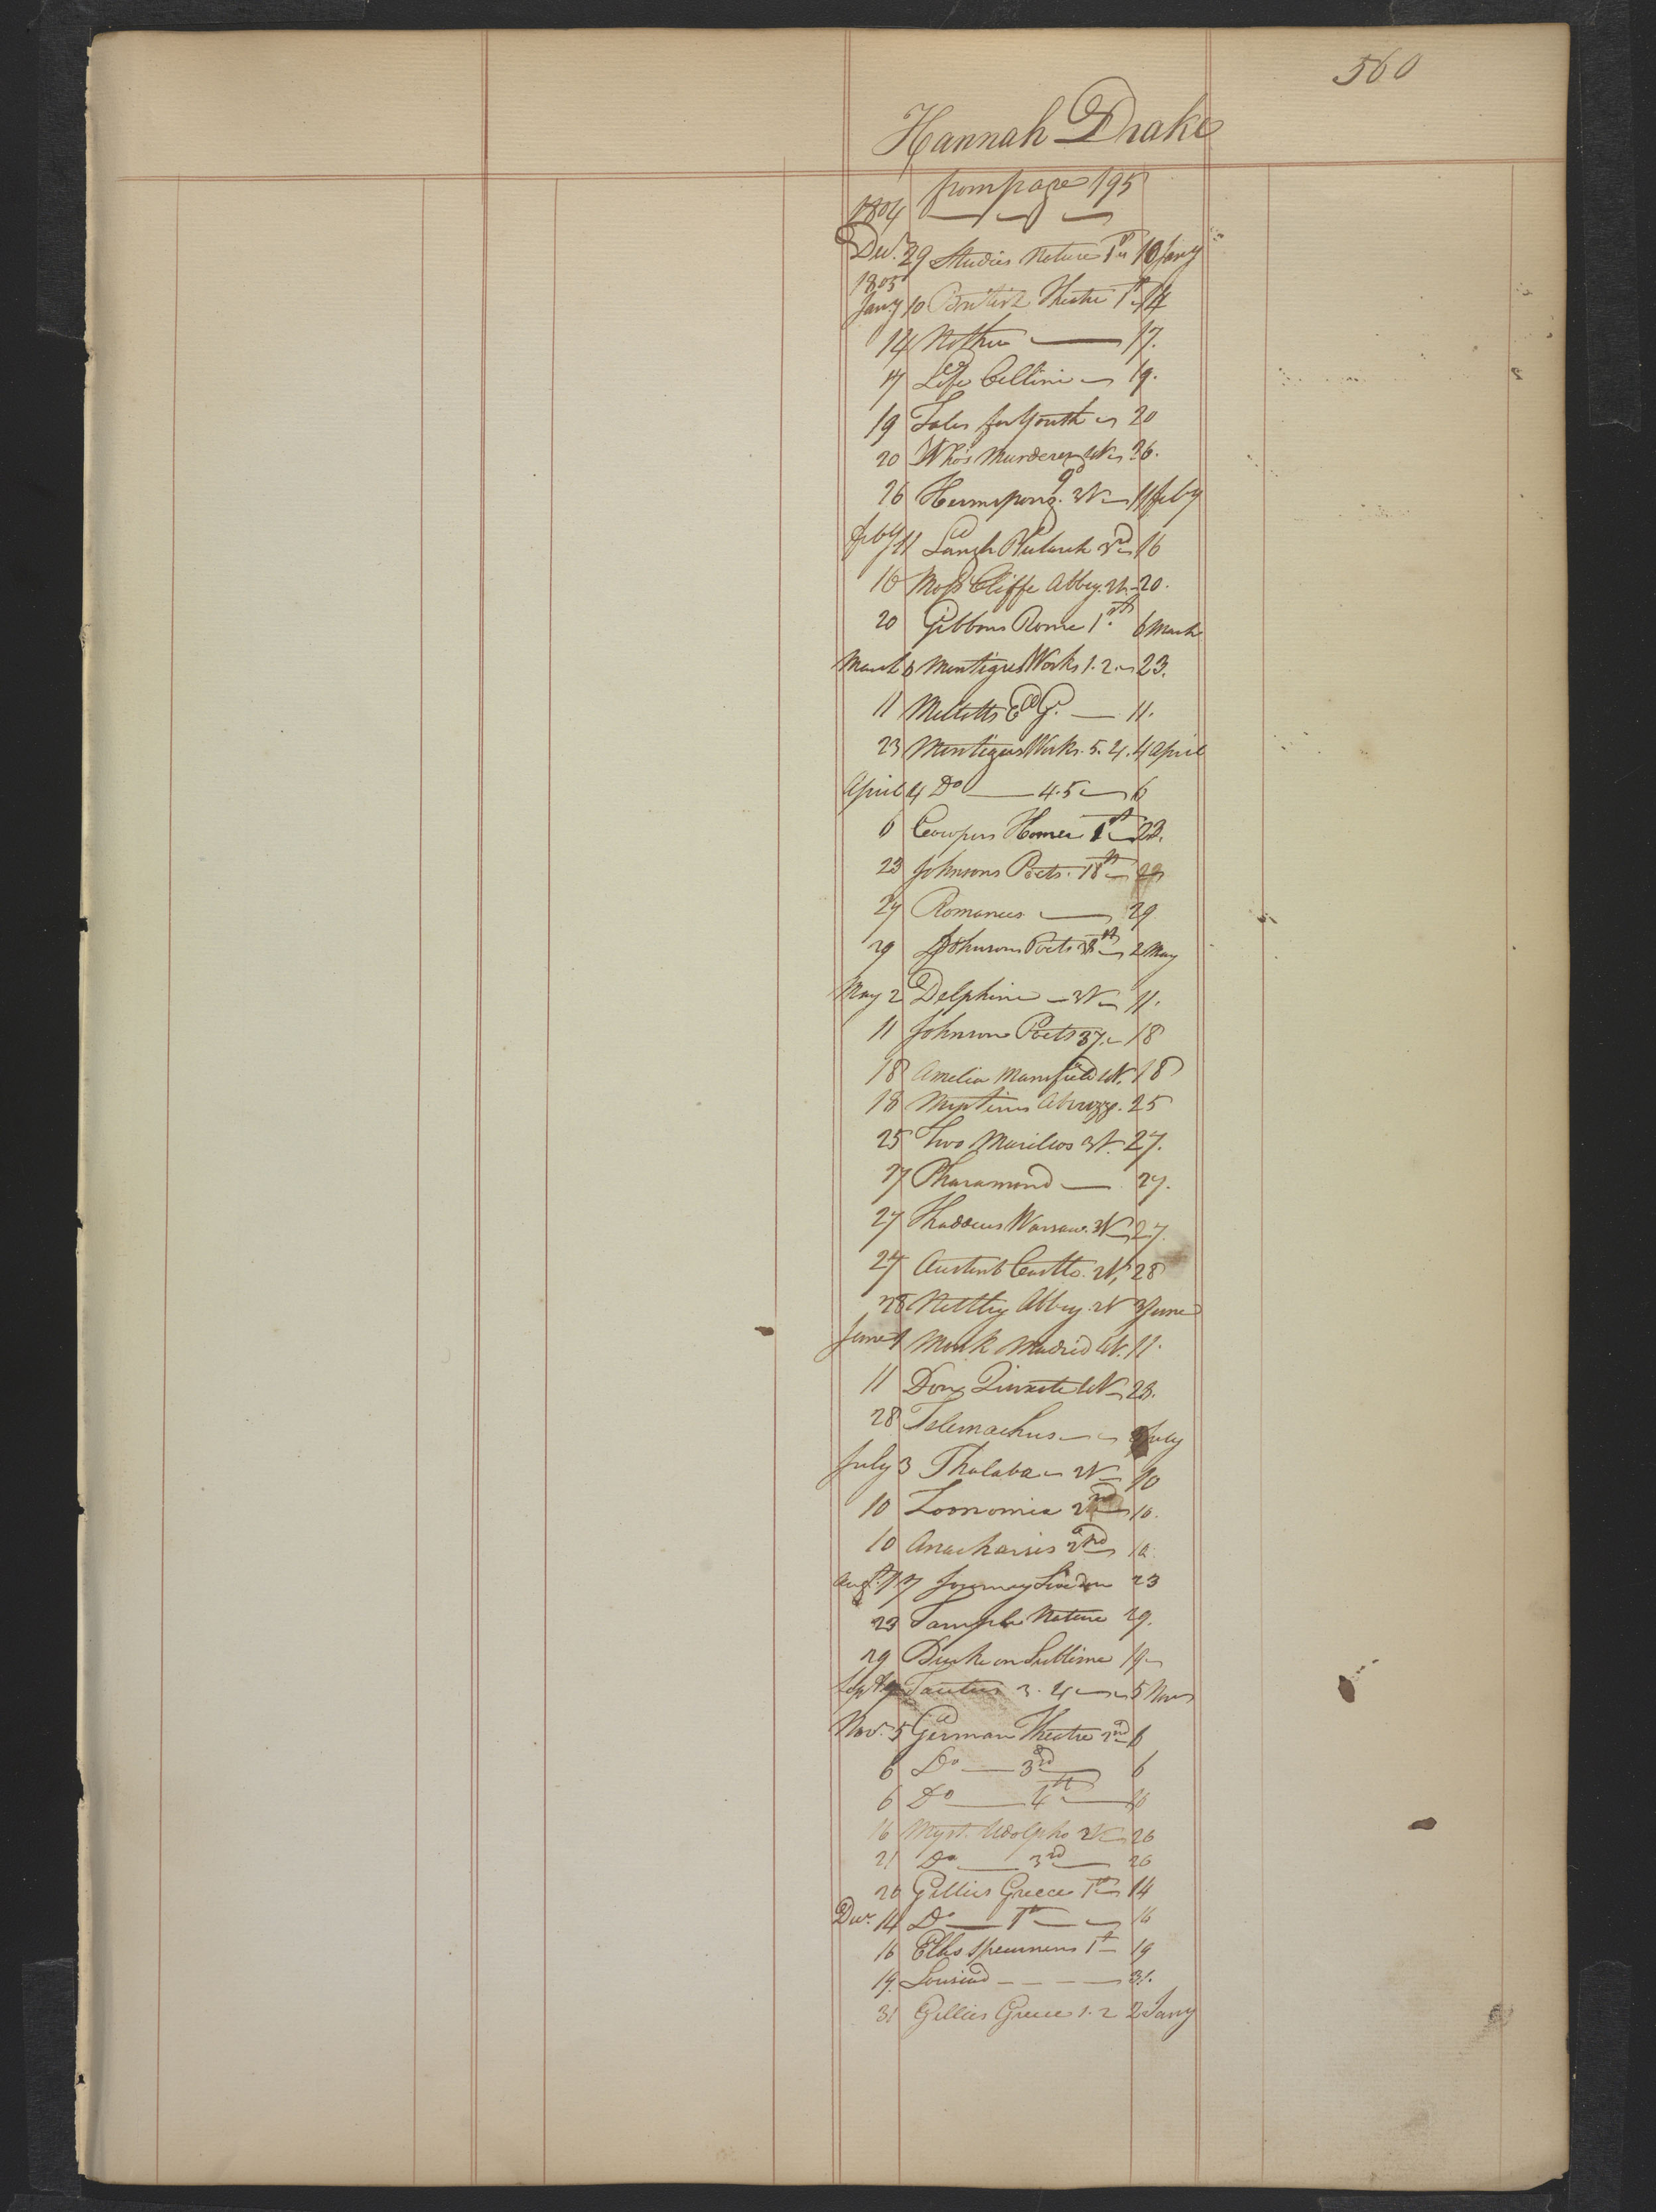 560
Hannah Drake
from page 195
1804
Decr. 29 Studies Nature 1st 10 Jany
1805
Jany 10 British Theatre 1st 14
14 Nothin 17.
17 Life Cellini 19.
19 Tales for Youth 20
20 Who's Murderer 4V 26.
26 Hermsprong. 3V 11 Feby
Feby 11 Langh Plutarch 3rd 16
16 Moss Cliffe Abbey. 2V. 20.
20 Gibbons Rome 1st. 6 March
March 6 Montigues Works 1. 2. 23.
11 11.
23 Montigues Works. 5. 4. 4 April
April 4 Do 4. 5 6
6 Cowpers Homer 1st 22.
23 Johnsons Poets. 18th
27 Romances. 29
29 Johnsons Poets 38th 2 May
May 2 Delphine 3V 11.
11 Johnsons Poets 37. 18
18 Amelia Mansfield 4V. 18
18 Abruzze. 25
25 Two Marilios 3V. 27.
27 Pharamond 27.
27 Thaddeus Warsaw. 3V 27.
27 Austenb Castle. 2V, 28
28 Nettley Abbey. 2V 3 June
June Monk Madrid 4V. 11.
11 Don Quixote 4V 23.
28 Telemachus 3 July
July 3 Thalaba 2V 10
10 Zoonomia 2nd 10.
10 Anacharsis 2nd 10
Augt. 17 Journey London 23
23 Temple Nature 29.
29 Burke on Sublime 19
Sept Tacitus 3. 4 5 Nov
Nov. 5 German Theatre 2nd 6
6 Do 3rd 6
6 Do 4th 16
16 Myst. Udolpho 2V 26
21 Do 3rd 26
26 Gillies Greece 1st 14
Decr. 14 Do 1st 16
16 Ellis Specimens 1st 19
19. Lousiad 31.
31 Gillies Greece 1. 2 2 Jany